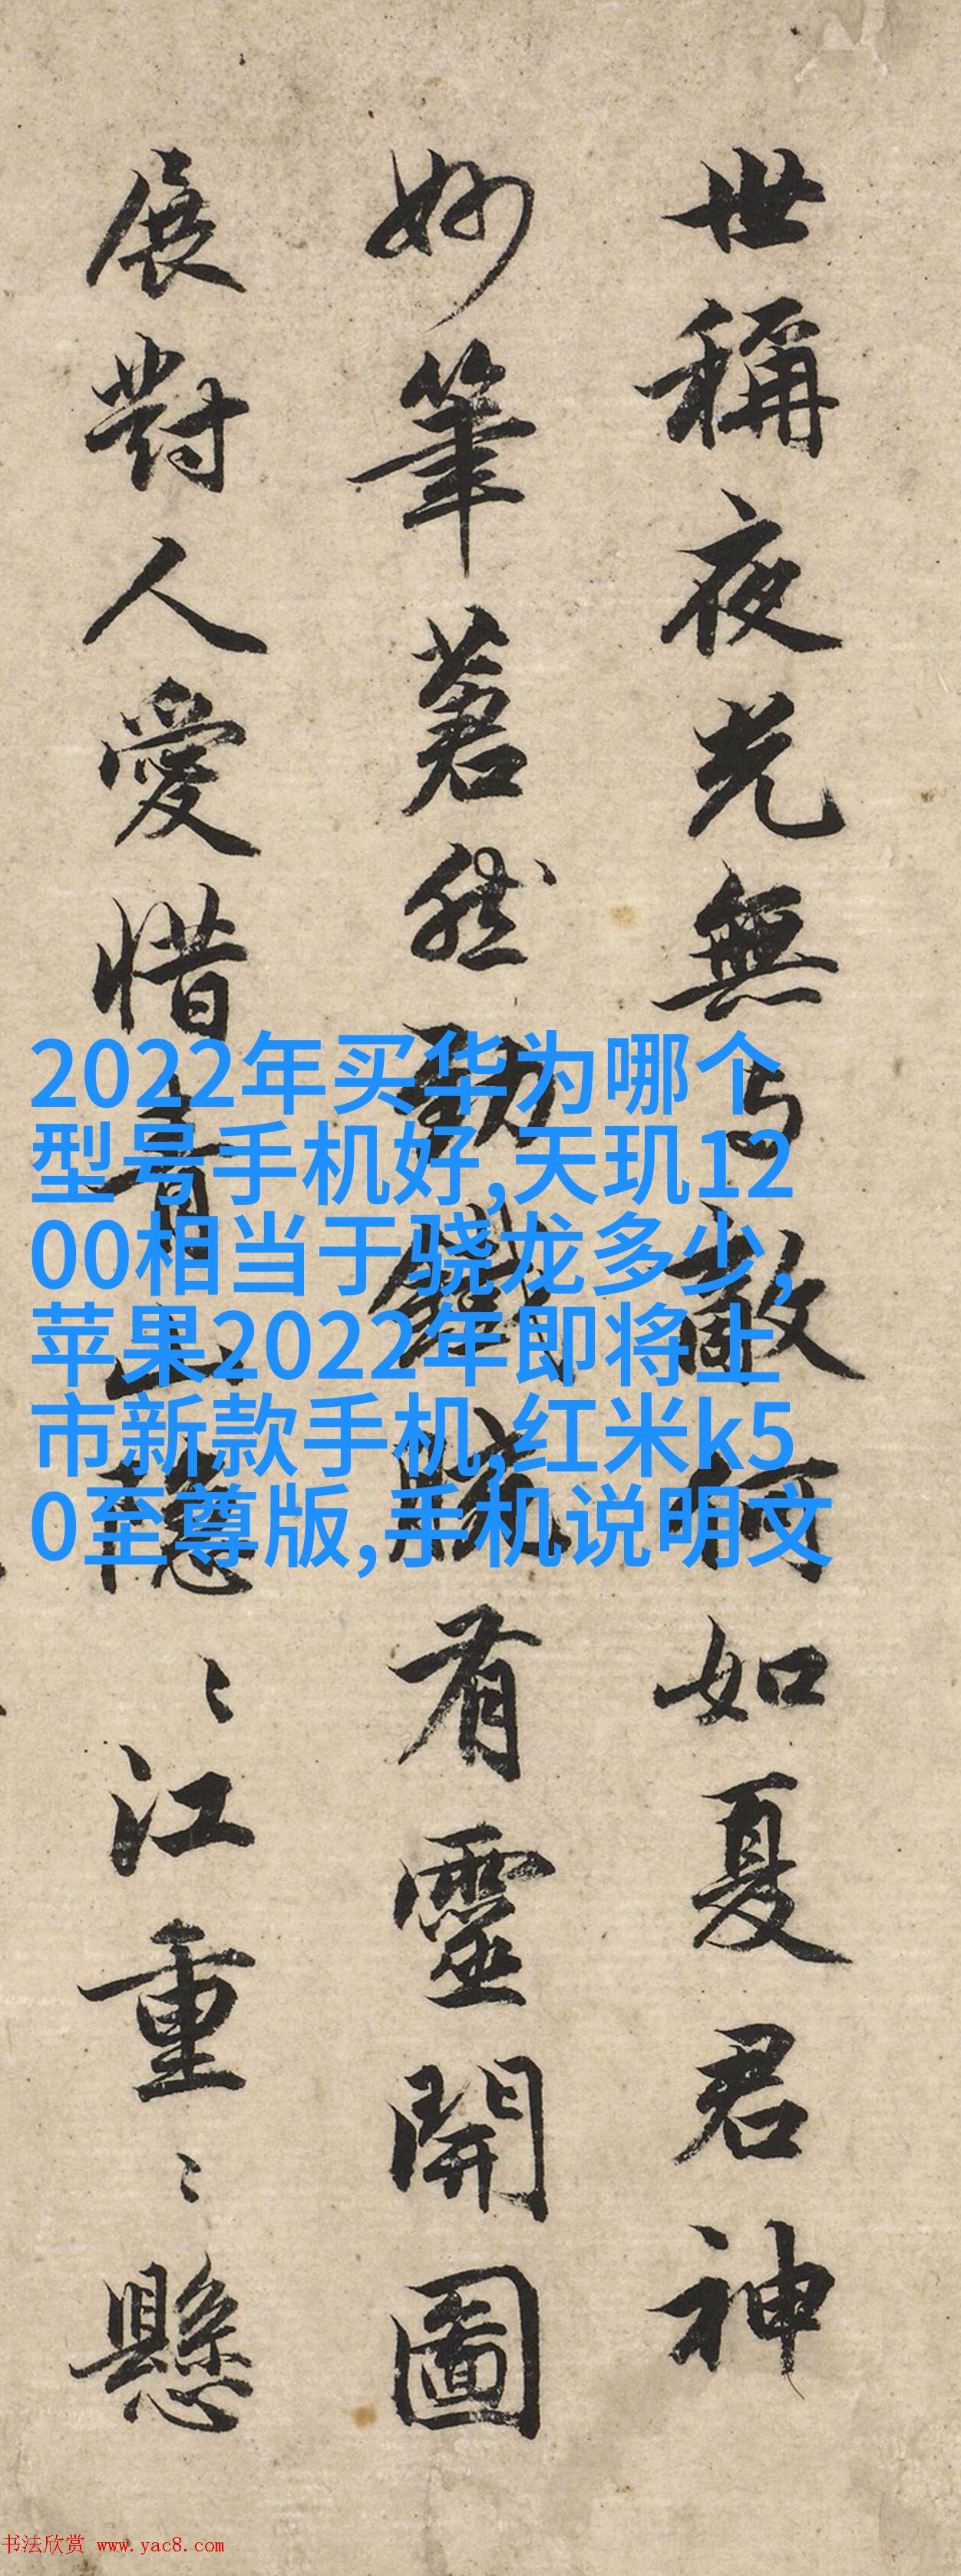 世稱夜光無与敵何如夏君神
妙筆蒼然有靈開圖
展對人愛惜青山隱〻江重〻懸
2022年买华为哪个
型号手机好,天玑12
00相当于骁龙多少,
苹果2022年即将上
市新款手机,红米k5
0至尊版,手机说明文
书法欣赏 www.yac8.com